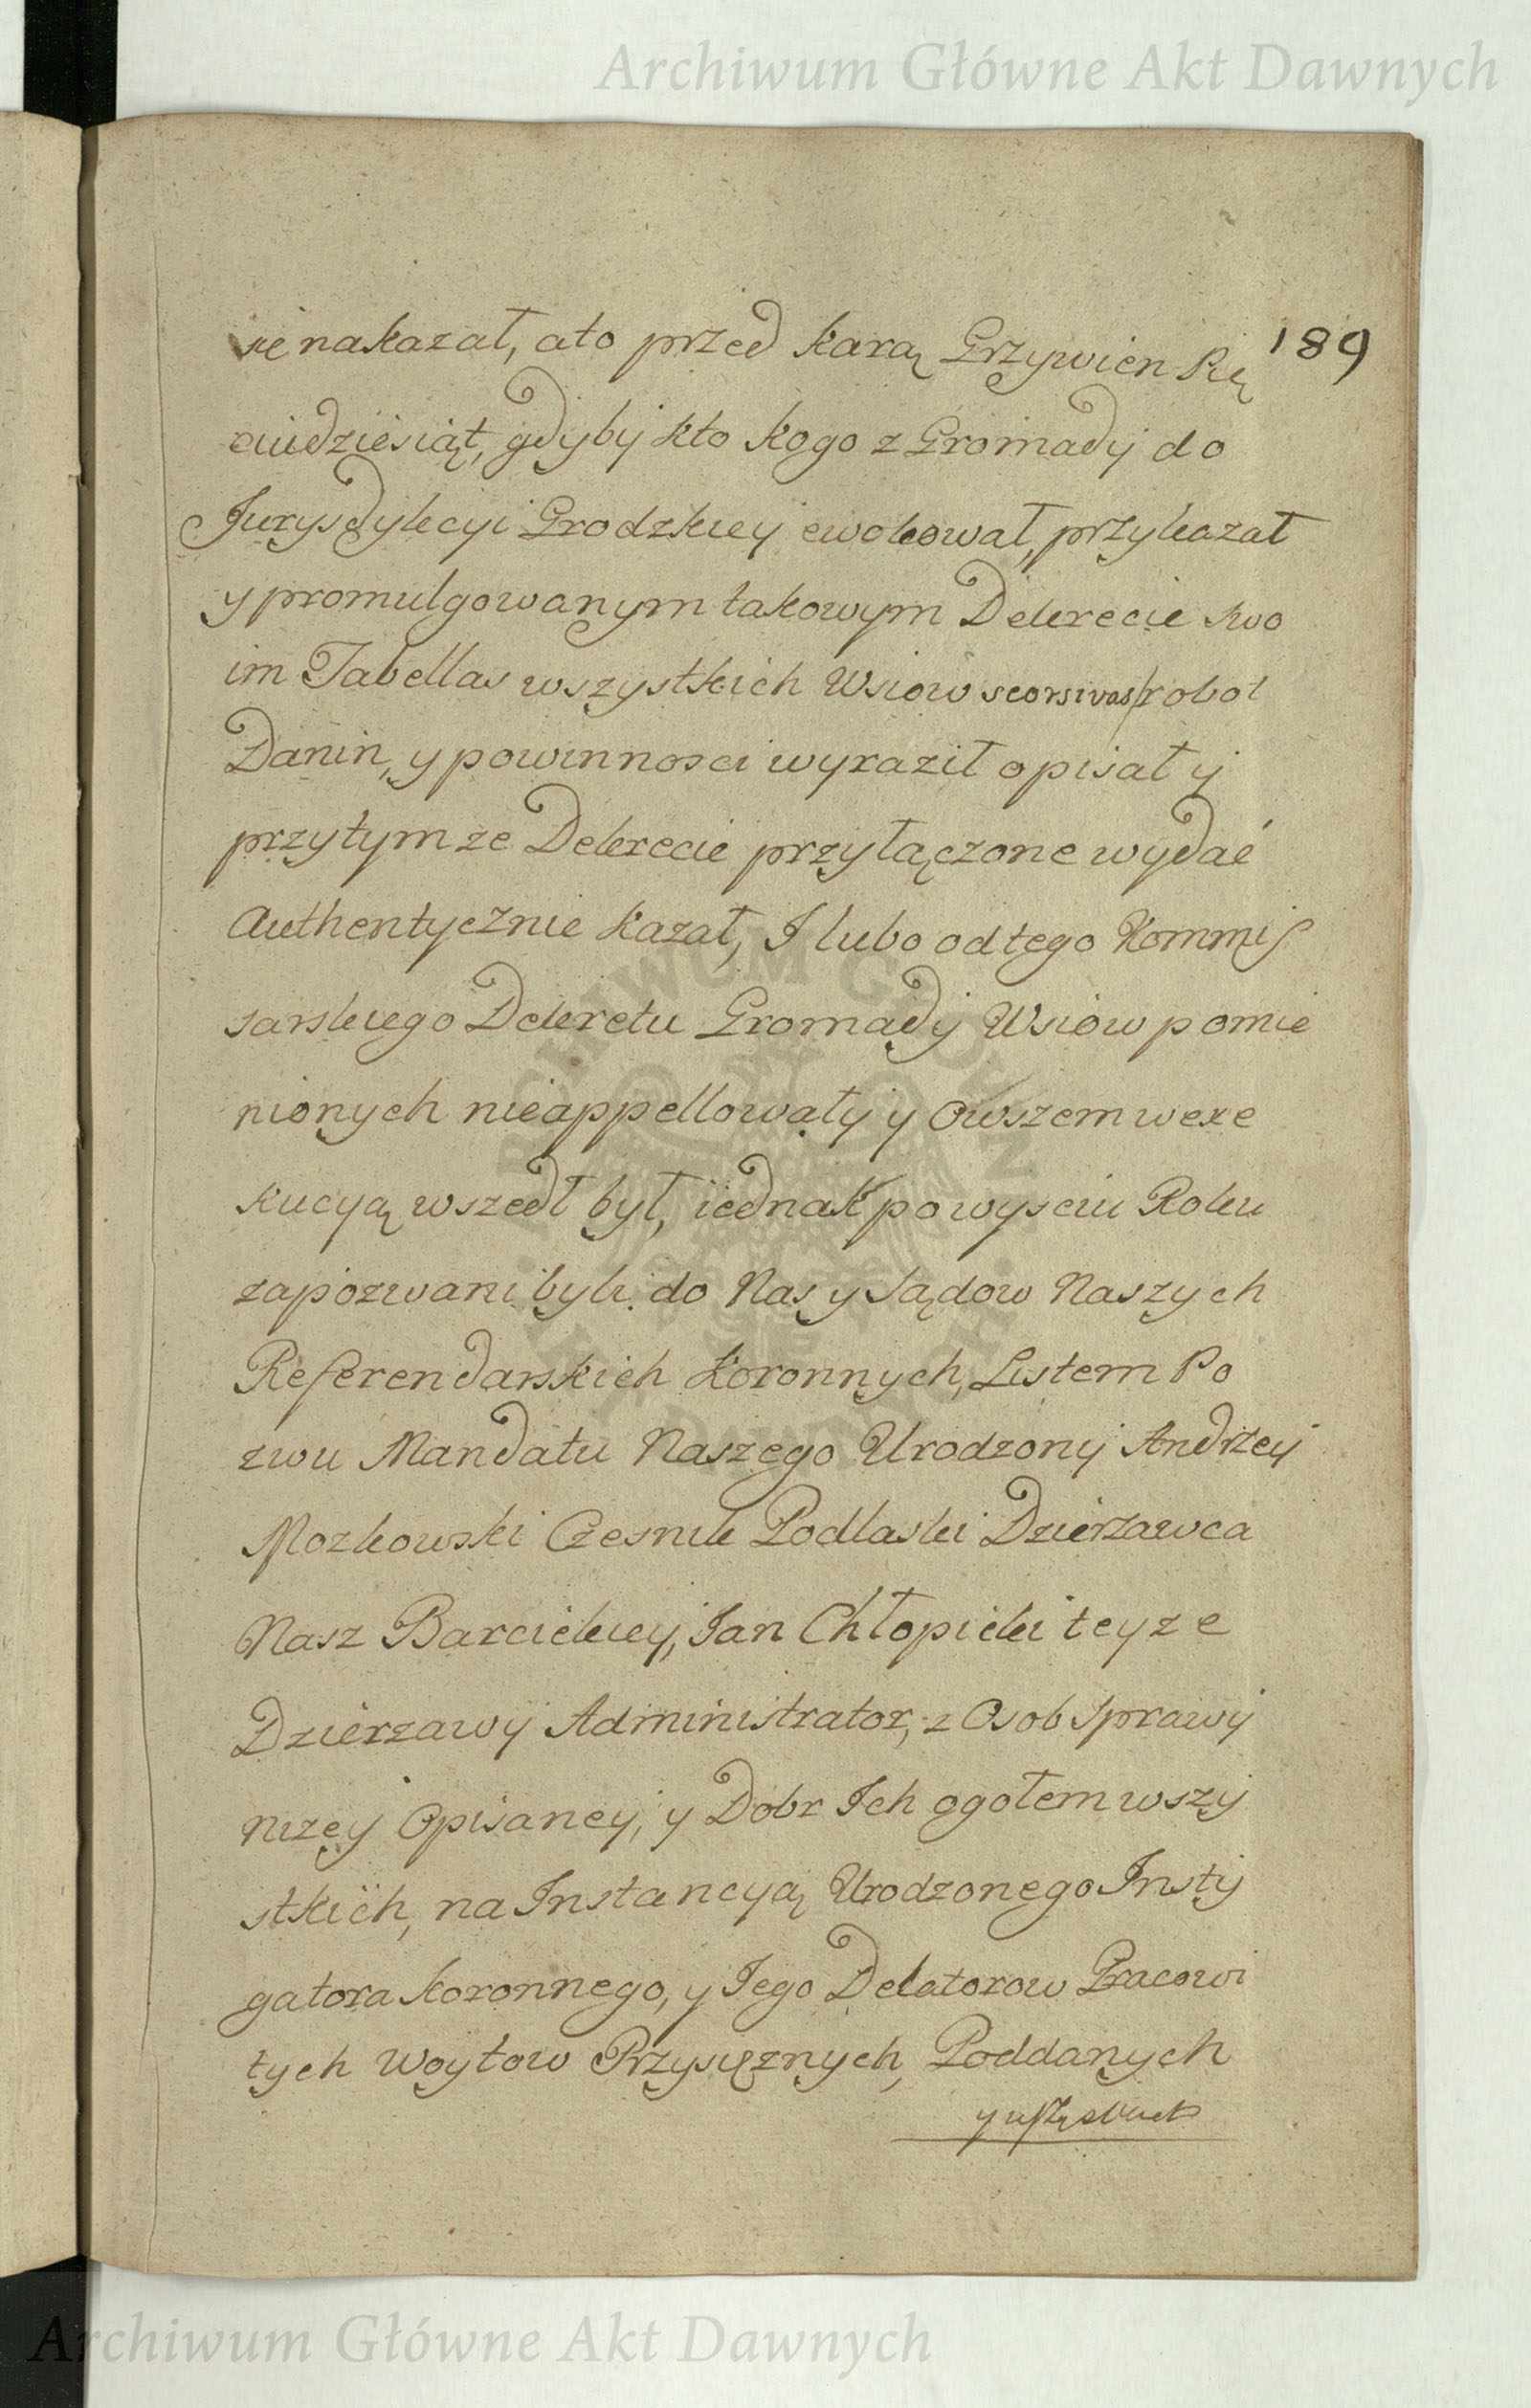 Archiwum Główne Akt Dawnych
189
się nakazał, a to przed karą Grzywien Pię
ciudziesiąt, gdyby kto kogo z Gromady do
Jurysdykcyi Grodzkiey ewokował, przykazał
y promulgowanym takowym Dekrecie swo
im Tabellas wszystkich Wsiow seorsivas robot
Danin, y powinnosci wyraził opisał y
przytymze Dekrecie przyłączone wydać
Authentycznie kazał, I lubo od tego Kommis
sarskiego Dekretu Gromady Wsiow pomie
nionych nieappellowały y owszem w exe
kucyą wszedł był, iednak po wysciu Roku
zapozwani byli do Nas y Sądow Naszych
Referendarskich Koronnych, Listem Po
zwu Mandatu Naszego Urodzony Andrzey
Mozkowski Czesnik Podlaski Dzierzawca
Nasz Barcickiey, Jan Chłopicki teyze
Dzierzawy Administrator, z Osob Sprawy
nizey Opisaney, y Dobr Ich ogołem wszy
stkich, na Instancyą Urodzonego Insty
gatora Koronnego, y Jego Delatorow Pracowi
tych Woytow Przysięznych, Poddanych
y wszystkich
Archiwum Główne Akt Dawnych